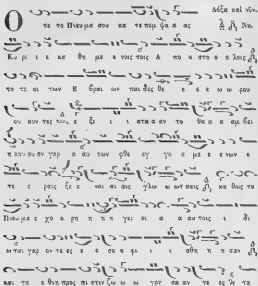 Δόξα καὶ νῦν.
Ο τε το Πνευ μα σου κα τε πεμ ψα ας Νη.
Κυ ρι ε κα θη με ε νοις τοις Α πο ο στο ο λοις
το τε οι των Ε βραι ων παι δες θε ε ε ω ω ρου
ου ουν τες ε ξε ι ι στα α αν το θα α αμ βει
η κου ου ον γαρ α αυ των φθε εγ γο ο με ε ε νων ε
τε ε ραις ξε ε ναι αι αις γλω ω ωτ ταις κα θως το
Πνευ μα ε χο ο ρη η η η γει οι α α αυ τοις ι δι
ω ται γαρ ον τε ες ε ε σο ο φι ι ι σθη η η σαν
και τα ε θνη προς πι στιν ζω ω ω γρη σα αν τε ες τα